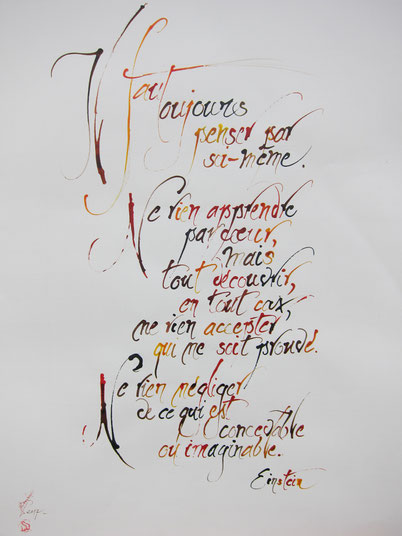 Il faut
toujours
penser par
soi-même.
Ne rien apprendre
par cœur,
mais
tout découvrir,
en tout cas,
ne rien accepter
qui ne soit prouvé.
Ne rien négliger
de ce qui est
concevable
ou imaginable.
Einstein